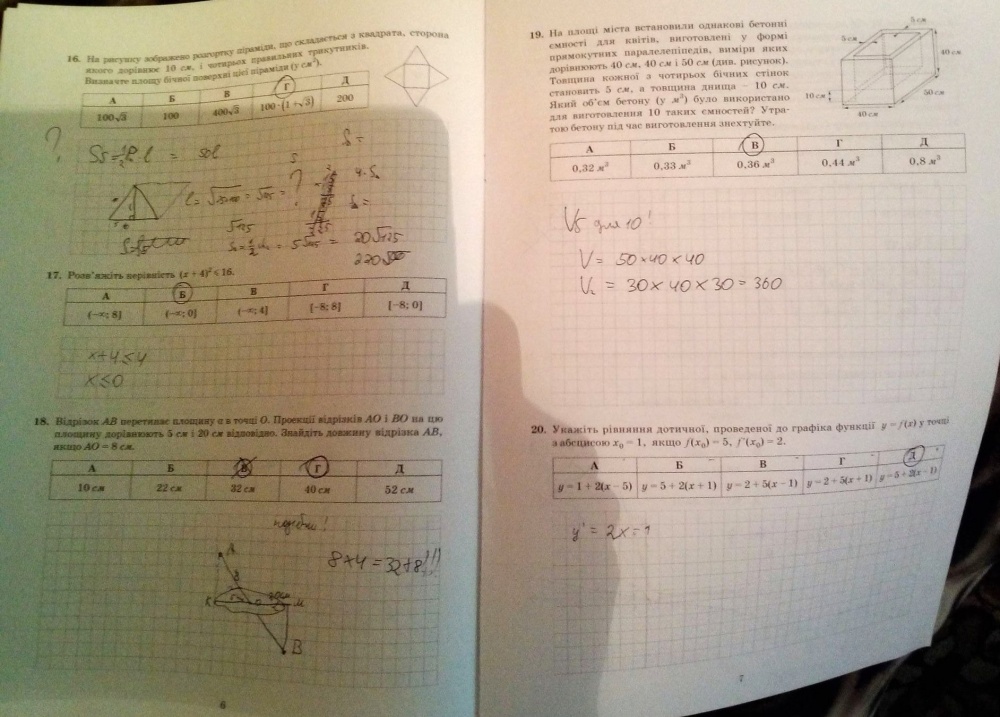 16. На рисунку зображено розгортку піраміди, що складається з квадрата, сторона
якого дорівнює 10 см, і чотирьох правильних трикутників.
Визначте площу бічної поверхні цієї піраміди (у см²).
А Б В Г Д
100√3 100 400√3 100·(1+√3) 200
?
= 50l
S
4·S
17. Розв'яжіть нерівність (x + 4)² ≤ 16.
А Б В Г Д
(−∞; 8] (−∞; 0] (−∞; 4] [−8; 8] [−8; 0]
x+4≤4
x≤0
18. Відрізок AB перетинає площину α в точці O. Проекції відрізків AO і BO на цю
площину дорівнюють 5 см і 20 см відповідно. Знайдіть довжину відрізка AB,
якщо AO = 8 см.
А Б В Г Д
10 см 22 см 32 см 40 см 52 см
8×4=32+8!!!
A
8
K 5 O M
B
6
19. На площі міста встановили однакові бетонні
ємності для квітів, виготовлені у формі
прямокутних паралелепіпедів, виміри яких
дорівнюють 40 см, 40 см і 50 см (див. рисунок).
Товщина кожної з чотирьох бічних стінок
становить 5 см, а товщина днища – 10 см.
Який об'єм бетону (у м³) було використано
для виготовлення 10 таких ємностей? Утра-
тою бетону під час виготовлення знехтуйте.
5 см
5 см
40 см
10 см
50 см
40 см
А Б В Г Д
0,32 м³ 0,33 м³ 0,36 м³ 0,44 м³ 0,8 м³
для 10!
V = 50×40×40
V₂ = 30×40×30=360
20. Укажіть рівняння дотичної, проведеної до графіка функції y = f(x) у точці
з абсцисою x₀ = 1, якщо f(x₀) = 5, f′(x₀) = 2.
А Б В Г Д
y = 1 + 2(x − 5) y = 5 + 2(x + 1) y = 2 + 5(x − 1) y = 2 + 5(x + 1) y = 5 + 2(x − 1)
7